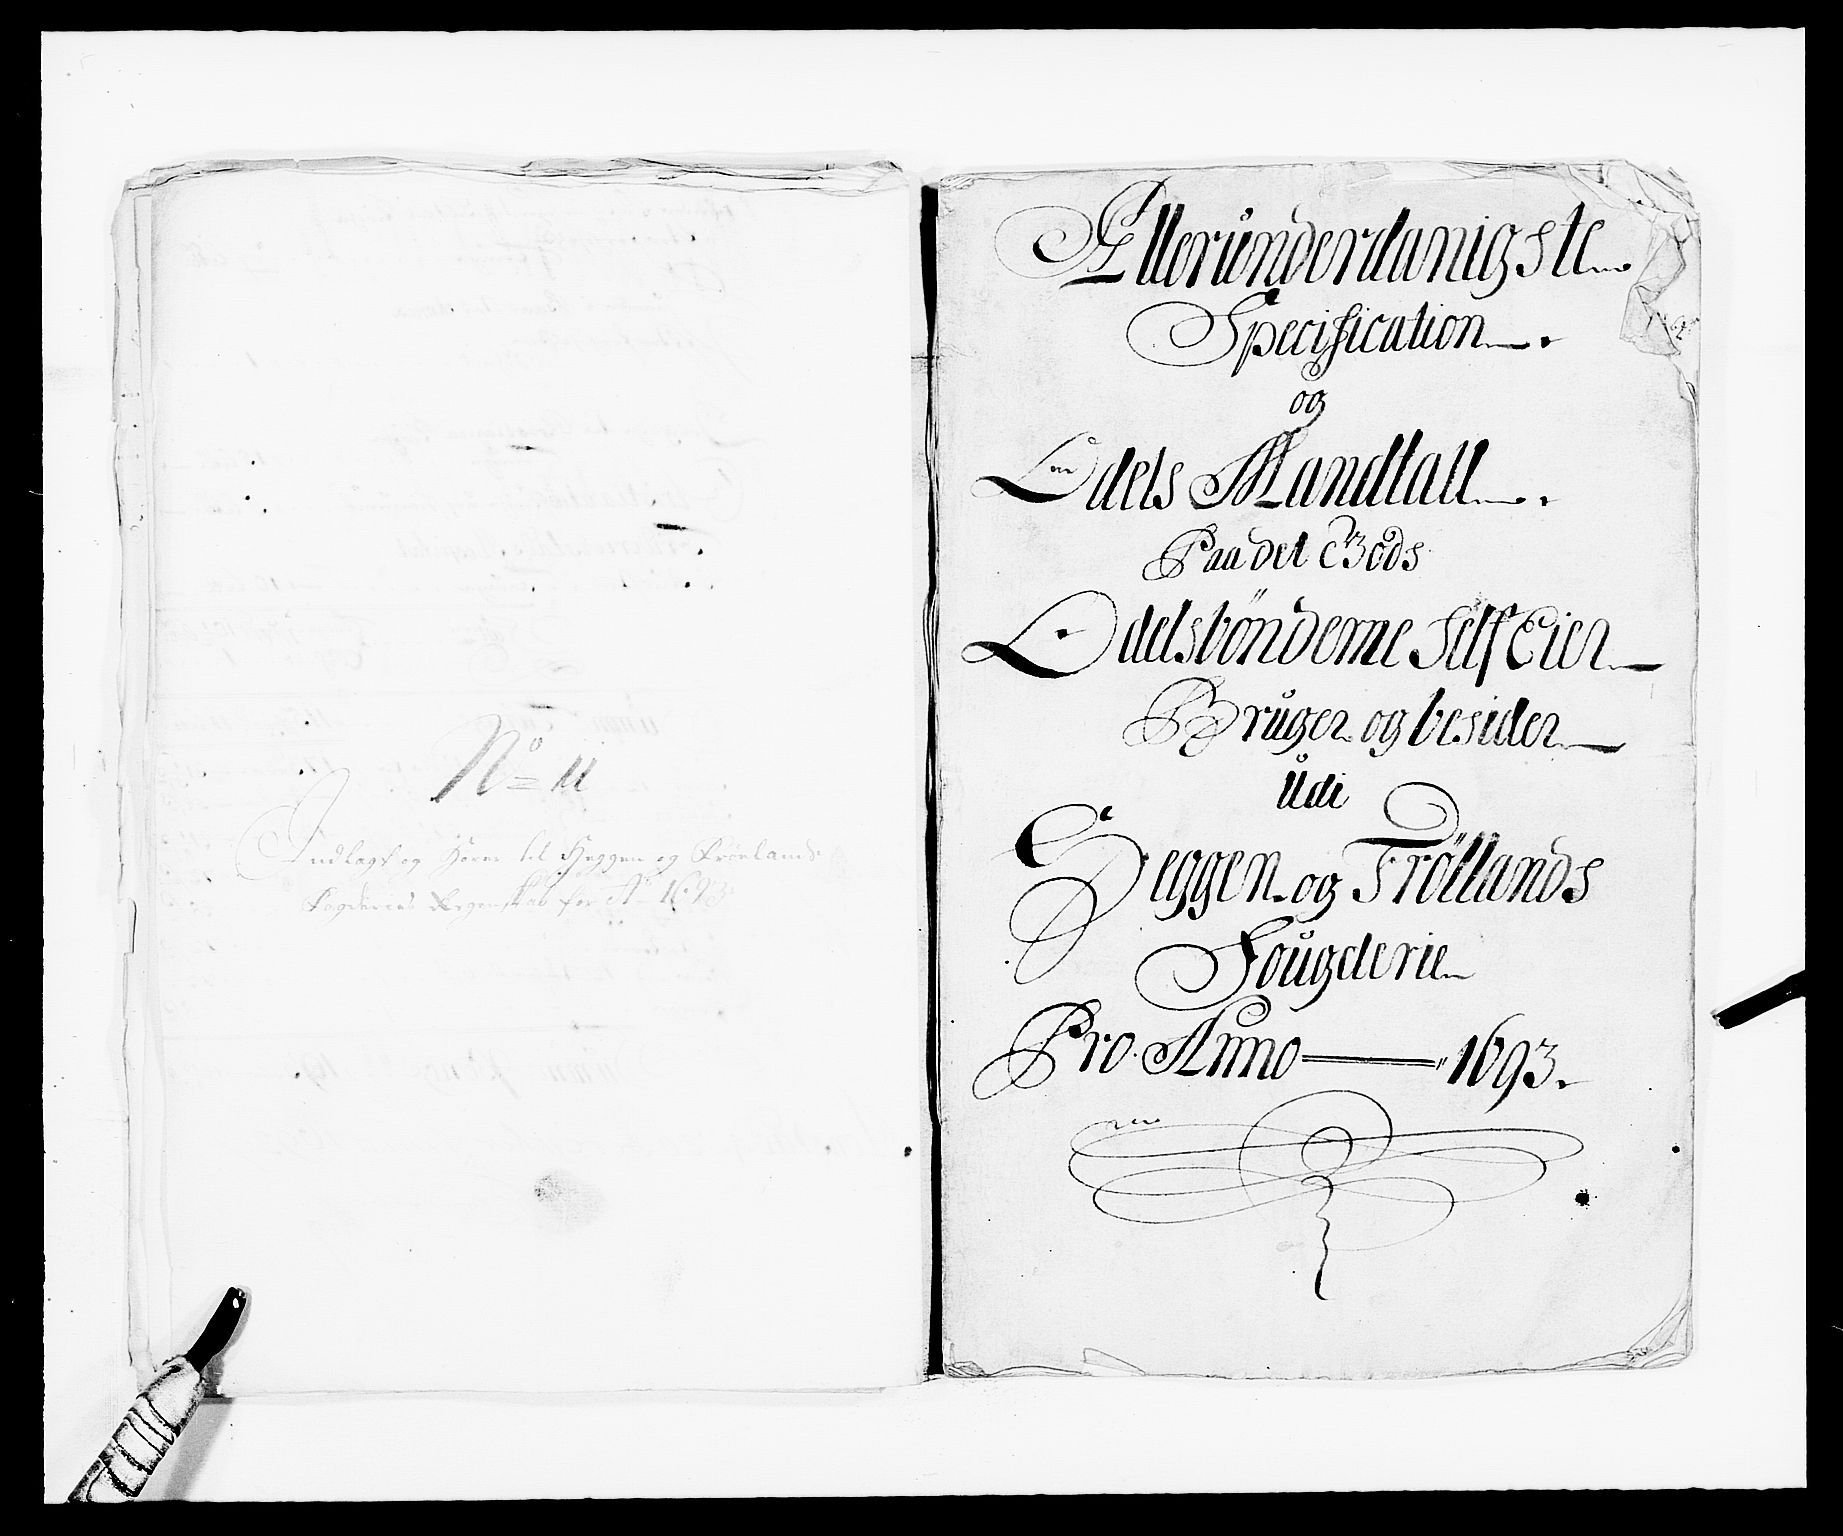 No 11
Indlagt og Hører til Heggen og Frønlands
Fogderies Regenskab for Ao 1693
Allerunderdanigste
Specification
og
Odels Mandtall
Paa det Gods
Odelsbønderne Self Eier
Bruger og besider
Udi
Heggen og Frøllands
Fougderie
Pro Anno 1693